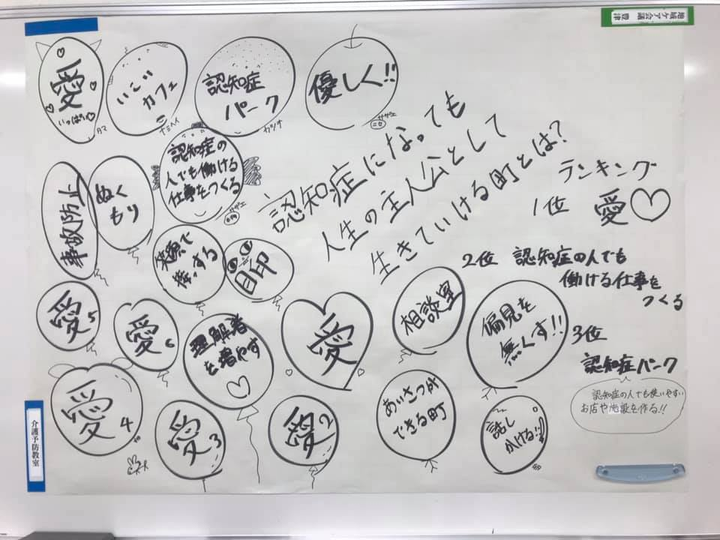 地域ケア会議 豊津
愛
いっぱい
タマ
いこい
カフェ
ナミヘイ
認知症
パーク
カツオ
優しく!!
サザエ
認知症の
人でも働ける
仕事をつくる
認知症になっても
人生の主人公として
生きていける町とは?
事故防止
ぬく
もり
目印
ランキング
1位 愛♡
2位 認知症の人でも
働ける仕事を
つくる
3位
認知症パーク
認知症の人でも使いやすい
お店や施設を作る!!
愛5
愛6
理解者
を増やす
♡
愛
相談室
偏見を
無くす!!
愛4
愛3
愛2
あいさつが
できる町
話し
かける!!
介護予防教室